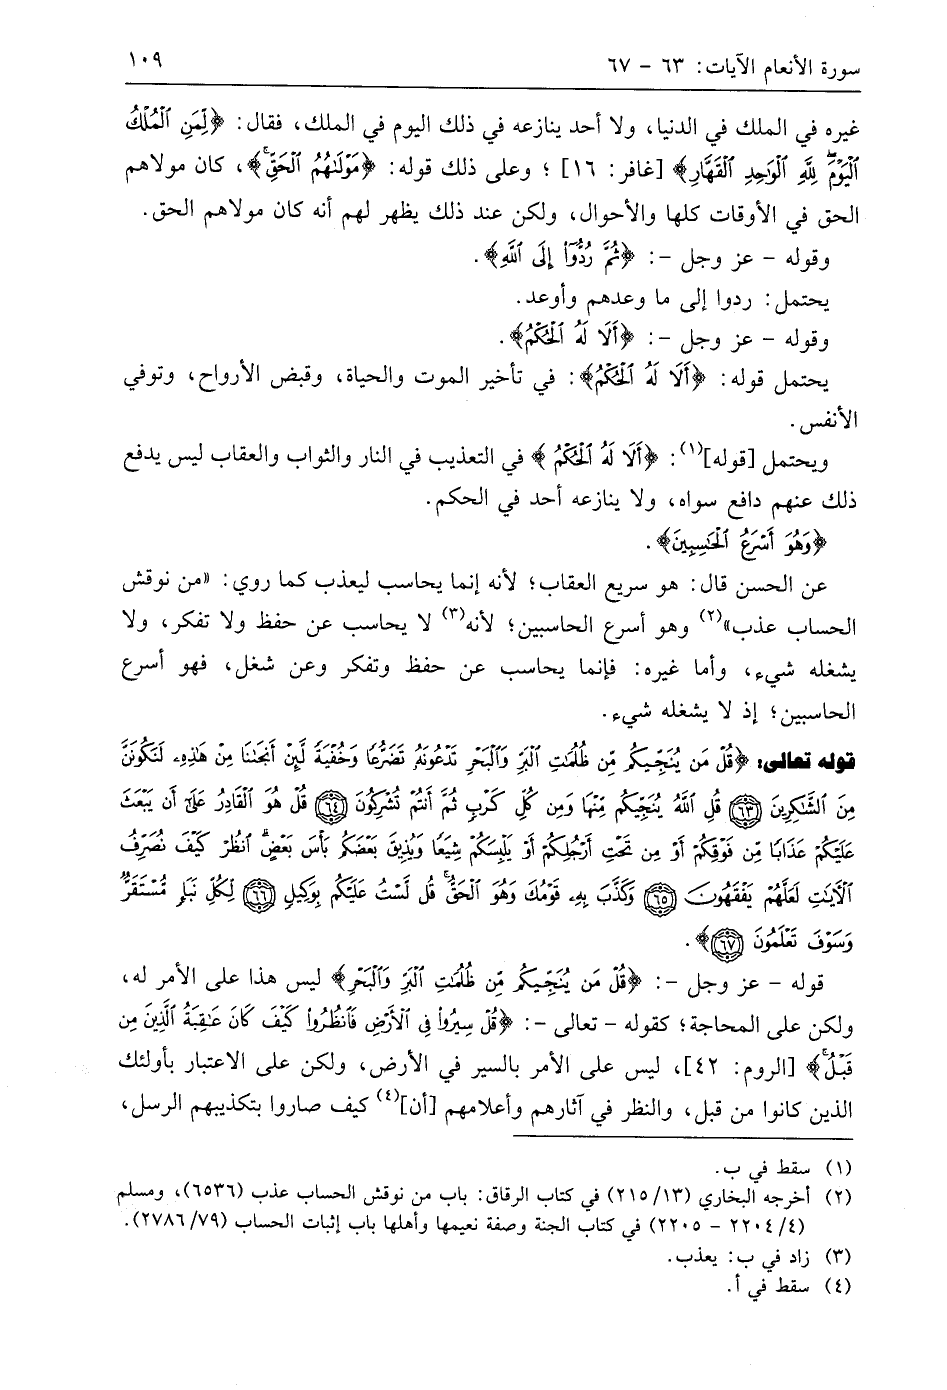 سورة الأنعام الآيات: ٦٣ - ٦٧ ١٠٩
غيره في الملك في الدنيا، ولا أحد ينازعه في ذلك اليوم في الملك، فقال: ﴿لِّمَنِ ٱلۡمُلۡكُ
ٱلۡيَوۡمَۖ لِلَّهِ ٱلۡوَٰحِدِ ٱلۡقَهَّارِ﴾ [غافر: ١٦] ؛ وعلى ذلك قوله: ﴿مَوۡلَىٰهُمُ ٱلۡحَقِّۚ﴾، كان مولاهم
الحق في الأوقات كلها والأحوال، ولكن عند ذلك يظهر لهم أنه كان مولاهم الحق.
وقوله - عز وجل -: ﴿ثُمَّ رُدُّوٓاْ إِلَى ٱللَّهِ﴾.
يحتمل: ردوا إلى ما وعدهم وأوعد.
وقوله - عز وجل -: ﴿أَلَا لَهُ ٱلۡحُكۡمُ﴾.
يحتمل قوله: ﴿أَلَا لَهُ ٱلۡحُكۡمُ﴾: في تأخير الموت والحياة، وقبض الأرواح، وتوفي
الأنفس.
ويحتمل [قوله](١): ﴿أَلَا لَهُ ٱلۡحُكۡمُ﴾ في التعذيب في النار والثواب والعقاب ليس يدفع
ذلك عنهم دافع سواه، ولا ينازعه أحد في الحكم.
﴿وَهُوَ أَسۡرَعُ ٱلۡحَٰسِبِينَ﴾.
عن الحسن قال: هو سريع العقاب؛ لأنه إنما يحاسب ليعذب كما روي: «من نوقش
الحساب عذب»(٢) وهو أسرع الحاسبين؛ لأنه(٣) لا يحاسب عن حفظ ولا تفكر، ولا
يشغله شيء، وأما غيره: فإنما يحاسب عن حفظ وتفكر وعن شغل، فهو أسرع
الحاسبين؛ إذ لا يشغله شيء.
قوله تعالى: ﴿قُلۡ مَن يُنَجِّيكُم مِّن ظُلُمَٰتِ ٱلۡبَرِّ وَٱلۡبَحۡرِ تَدۡعُونَهُۥ تَضَرُّعٗا وَخُفۡيَةٗ لَّئِنۡ أَنجَىٰنَا مِنۡ هَٰذِهِۦ لَنَكُونَنَّ
مِنَ ٱلشَّٰكِرِينَ ﴿٦٣﴾ قُلِ ٱللَّهُ يُنَجِّيكُم مِّنۡهَا وَمِن كُلِّ كَرۡبٖ ثُمَّ أَنتُمۡ تُشۡرِكُونَ ﴿٦٤﴾ قُلۡ هُوَ ٱلۡقَادِرُ عَلَىٰٓ أَن يَبۡعَثَ
عَلَيۡكُمۡ عَذَابٗا مِّن فَوۡقِكُمۡ أَوۡ مِن تَحۡتِ أَرۡجُلِكُمۡ أَوۡ يَلۡبِسَكُمۡ شِيَعٗا وَيُذِيقَ بَعۡضَكُم بَأۡسَ بَعۡضٍۗ ٱنظُرۡ كَيۡفَ نُصَرِّفُ
ٱلۡأٓيَٰتِ لَعَلَّهُمۡ يَفۡقَهُونَ ﴿٦٥﴾ وَكَذَّبَ بِهِۦ قَوۡمُكَ وَهُوَ ٱلۡحَقُّۚ قُل لَّسۡتُ عَلَيۡكُم بِوَكِيلٖ ﴿٦٦﴾ لِّكُلِّ نَبَإٖ مُّسۡتَقَرّٞۚ
وَسَوۡفَ تَعۡلَمُونَ ﴿٦٧﴾﴾.
قوله - عز وجل -: ﴿قُلۡ مَن يُنَجِّيكُم مِّن ظُلُمَٰتِ ٱلۡبَرِّ وَٱلۡبَحۡرِ﴾ ليس هذا على الأمر له،
ولكن على المحاجة؛ كقوله - تعالى -: ﴿قُلۡ سِيرُواْ فِي ٱلۡأَرۡضِ فَٱنظُرُواْ كَيۡفَ كَانَ عَٰقِبَةُ ٱلَّذِينَ مِن
قَبۡلُۚ﴾ [الروم: ٤٢]، ليس على الأمر بالسير في الأرض، ولكن على الاعتبار بأولئك
الذين كانوا من قبل، والنظر في آثارهم وأعلامهم [أن](٤) كيف صاروا بتكذيبهم الرسل،
(١) سقط في ب.
(٢) أخرجه البخاري (٢١٥/١٣) في كتاب الرقاق: باب من نوقش الحساب عذب (٦٥٣٦)، ومسلم
(٢٢٠٤/٤ - ٢٢٠٥) في كتاب الجنة وصفة نعيمها وأهلها باب إثبات الحساب (٢٧٨٦/٧٩).
(٣) زاد في ب: يعذب.
(٤) سقط في أ.